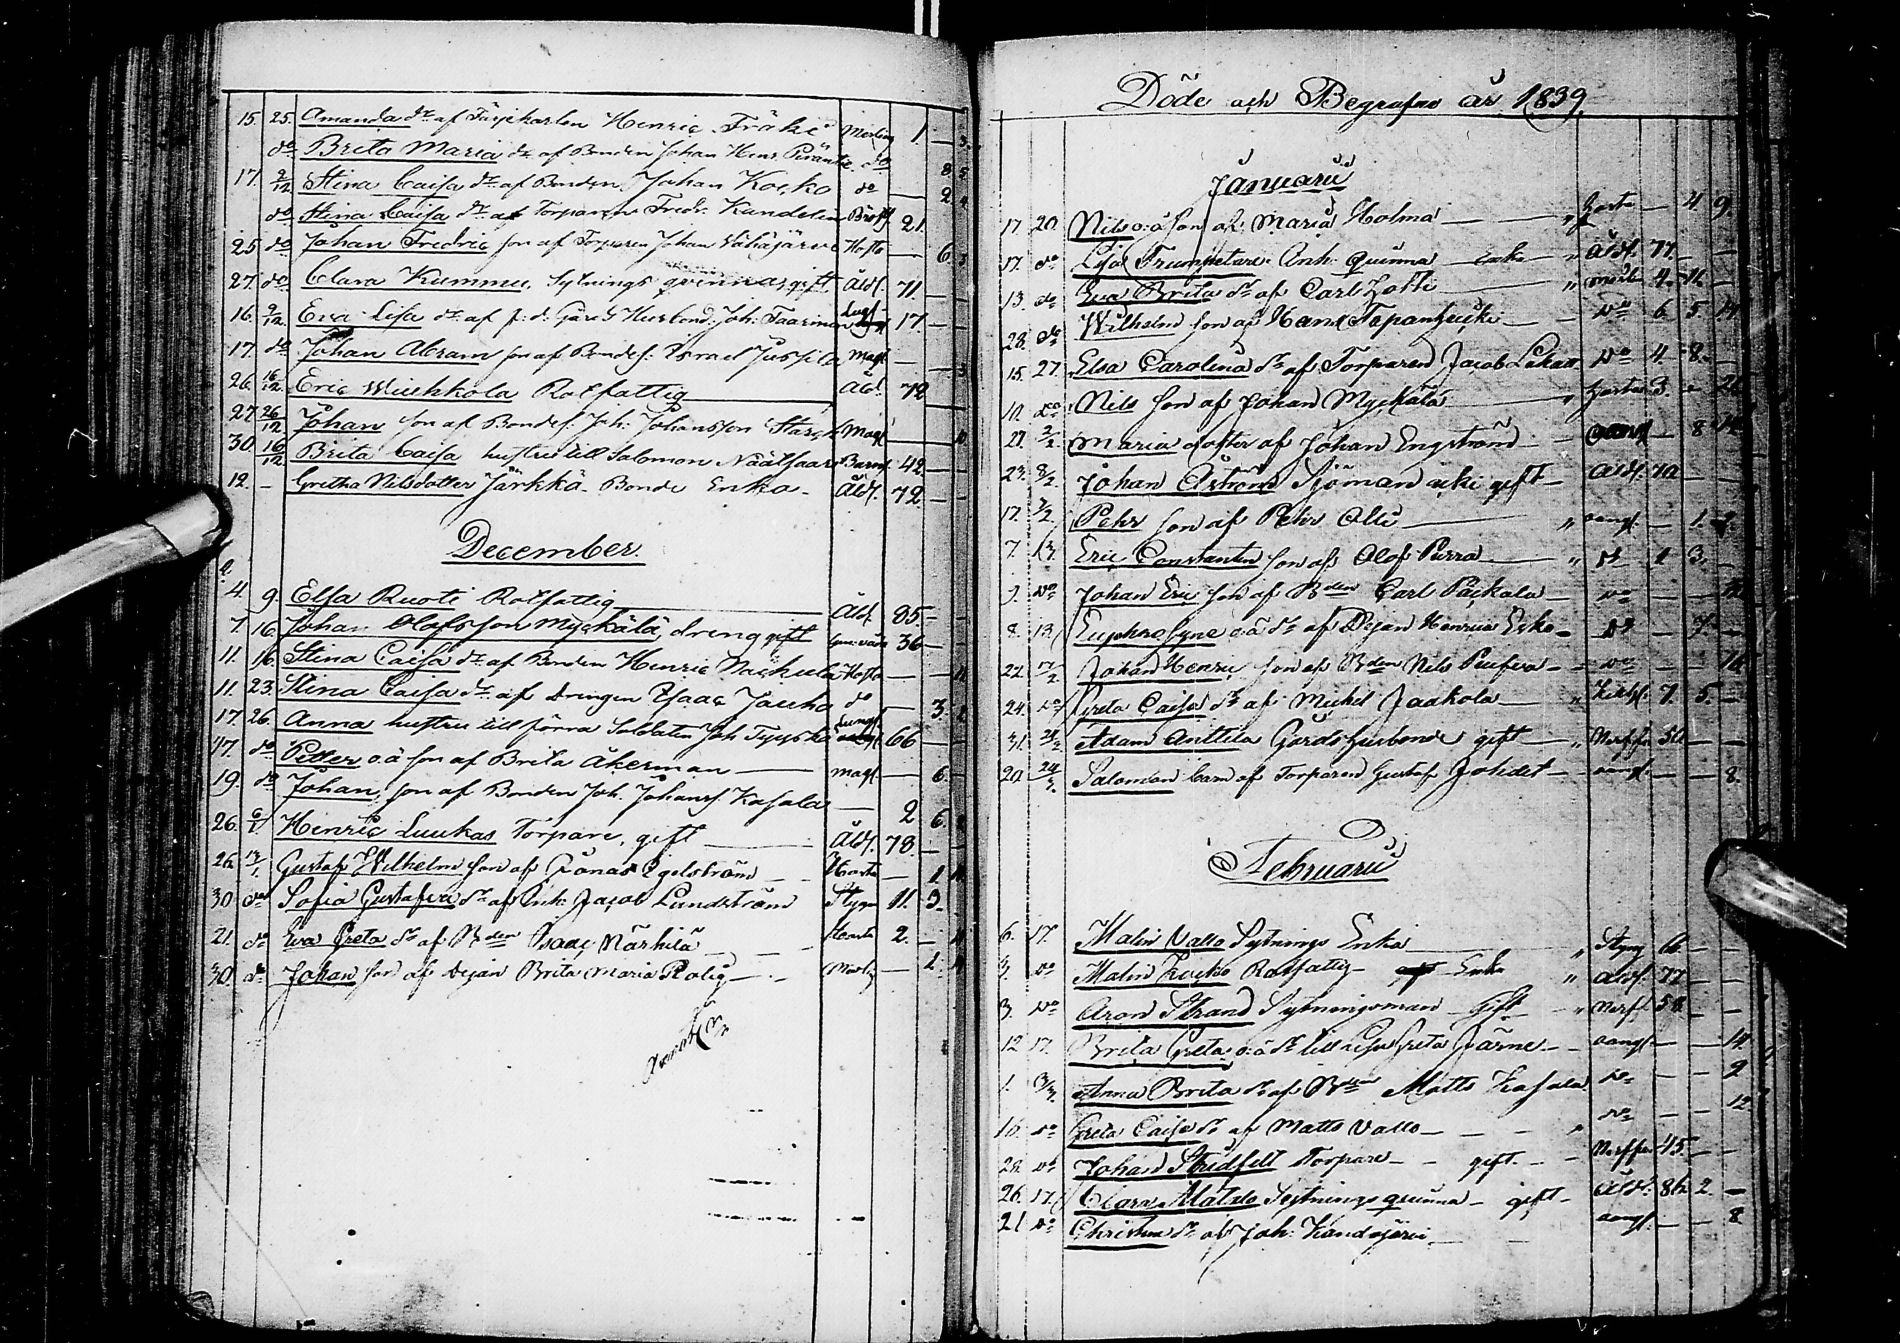 15. 25. Amanda dr af Färjekarlen Henric Fräki Mässling 1 — 3.
do Brita Maria dr af Bonden Johan Henr. do 8 5
17. 2/12 Stina Caisa dr af Bonden Johan Kocko do — 2 4
do Stina Caisa dr af Torparen Fredr. Kandelin Bröstf 21.
25 do Johan Fredric son af Torparen Johan Vähäjärvi Hosta — 6 3
27. do Clara Kummu, Sytnings qvinna, gift Åldf. 71. —
16. 9/12. Eva Lisa dr af f: d: Gårds Husbond: Joh: Taarinen 17 —
17. do Johan Abram son af Bondes: Israel Juspila Magf — 3
26. 16/12. Eric Wiukkola Rotfattig Åld. 72
27. 26/12 Johan son af Bondes: Joh: Johansson Starck Magf
30. 16/12 Brita Caisa hustru till Salomon Näätsaari Barnsf. 42 —
12. — Gretha Nilsdotter Järkkä Bonde Enka Åldf. 72 —
December.
4. 9. Elsa Ruoti Rotfattig Åldf. 85 —
7. 16. Johan Olofsson Myckälä, dreng gift 36 —
11. 16. Stina Caisa dr af Bonden Henric Nackula Hosta — — 11
11. 23. Stina Caisa dr af Drengen Isaac Jauho do — 3.
17. 26. Anna hustru till förra Soldaten Joh Lungs. 66 —
17. do Petter o.ä son af Brita Åkerman magf — 6.
19. do Johan, son af Bonden Joh. Johanss. Kasala — 2 6.
26. 6/1 Henric Luukas Torpare, gift Åldf. 78. —
26. 13/1. Gustaf Wilhelm son af Gönas Egelström Hosta — 1
30 do Sofia Gustafva dr af Inh: Jacob Lundström Stygn 11. 9.
21. do Eva Greta dr af Bden Isaac Närhilä Hosta 2. —
30. do Johan son af Dejan Brita Maria Rolig Mässl — 1
Döde och Begrafne år 1839
Januarii
17. 20. Nils o.ä Son af Maria Holma Hosta — 4 9.
17. do Lisa Trumpetare Inh: quinna enka Åldf. 77. —
13. do Eva Brita dr af Carl Hotti mässl. 4. 11. —
28. do Wilhelm son af Hans Tapanhuiki do 6 5 14
15. 27. Elsa Carolina dr af Torparen Jacob Lokatt do 4 8. —
10. do Nils son af Johan Myckälä Hosta 3. — 21
27. 2/2 Maria dotter af Johan Engström 8 14
23. 8/2. Johan Åström Sjöman gift Åldf. 70 —
17. Pehr son af Pehr Olli oangf. — 1.
7. Eric Constantin son af Olof Purra do 1 3.
9. do Johan Eric son af Bden Carl Päckala do — — 12
8. 13. Euphrosyne o.ä dr af Dejan Henrica Esko do — 7. —
22. 17/2. Johan Henric son af Bden Nils do — — 14
24. do Greta Caisa dr af Michel Jaakola 7. 5. —
31. 24/2 Adam Anttila Gårds Husbonde gift Nerffeb 50 — —
20. 24/2. Salomon barn af Torparen Gustaf Johdet oangf. — — 8.
Februarii
6. 17. Malin Vallo Sytnings Enka Stygn 66 —
3. do Malin Kocko Rotfattig Enka Åldf. 77 — —
3. do Aron Strand Sytningsman gift Nerff. 58 — —
12 17. Brita Greta o.ä dr till Lisa Greta Järne oangf. — — 14
1. 3/3. Anna Brita dr af Bden Matts Kasala do — — 9
16. do Greta Caisa dr af Matts Vallo do — — 12
28. do Johan Stridfelt Torpare gift. Nerffeb 45. —
26. 17. Clara Matzda Sytnings quinna gift Åldf. 86 2. —
21 do Christina dr af Joh. Kandojärvi oangf. — — 8